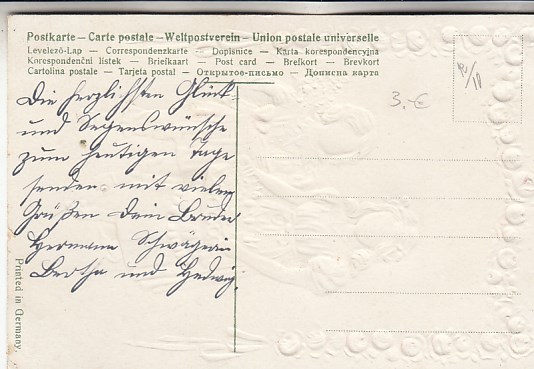 Postkarte — Carte postale — Weltpostverein — Union postale universelle
Levelező-Lap — Correspondenzkarte — Dopisnice — Karta korespondencyjna
Korespondenční lístek — Briefkaart — Post card — Brefkort — Brevkort
Cartolina postale — Tarjeta postal — Открытое-письмо — Дописна карта
Die herzlichsten Glück-
und Segenswünsche
zum heutigen Tage
senden mit vielen
Grüßen Dein Bruder
Hermann Schwägerin
Bertha und Hedwig.
3.-€
Printed in Germany.